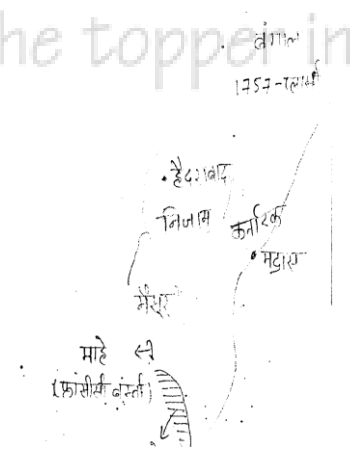 he topper in
बंगाल
1757-प्लासी
हैदराबाद
निजाम
कर्नाटक
मद्रास
मैसूर
माहे
(फ्रांसीसी बस्ती)